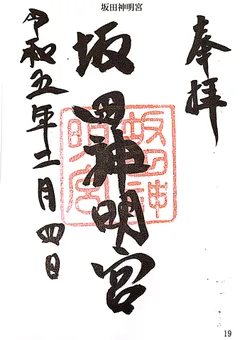 坂田神明宮
奉拝
坂田神明宮
令和五年十一月四日
坂田神
明宮
19